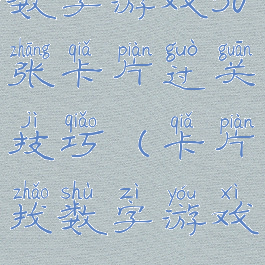 数字游戏30
zhāng qiǎ piàn guò guān
张卡片过关
jì qiǎo ( qiǎ piàn
技巧(卡片
zhǎo shù zì yóu xì
找数字游戏